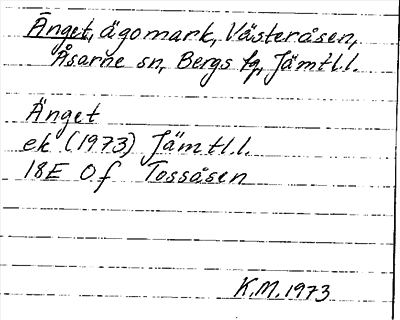 Änget, ägomark, Västeråsen,
Åsarne sn, Bergs tg, Jämtl.l.
Änget
ek (1973) Jämtl.l.
18E 0f Tossåsen
K.M. 1973